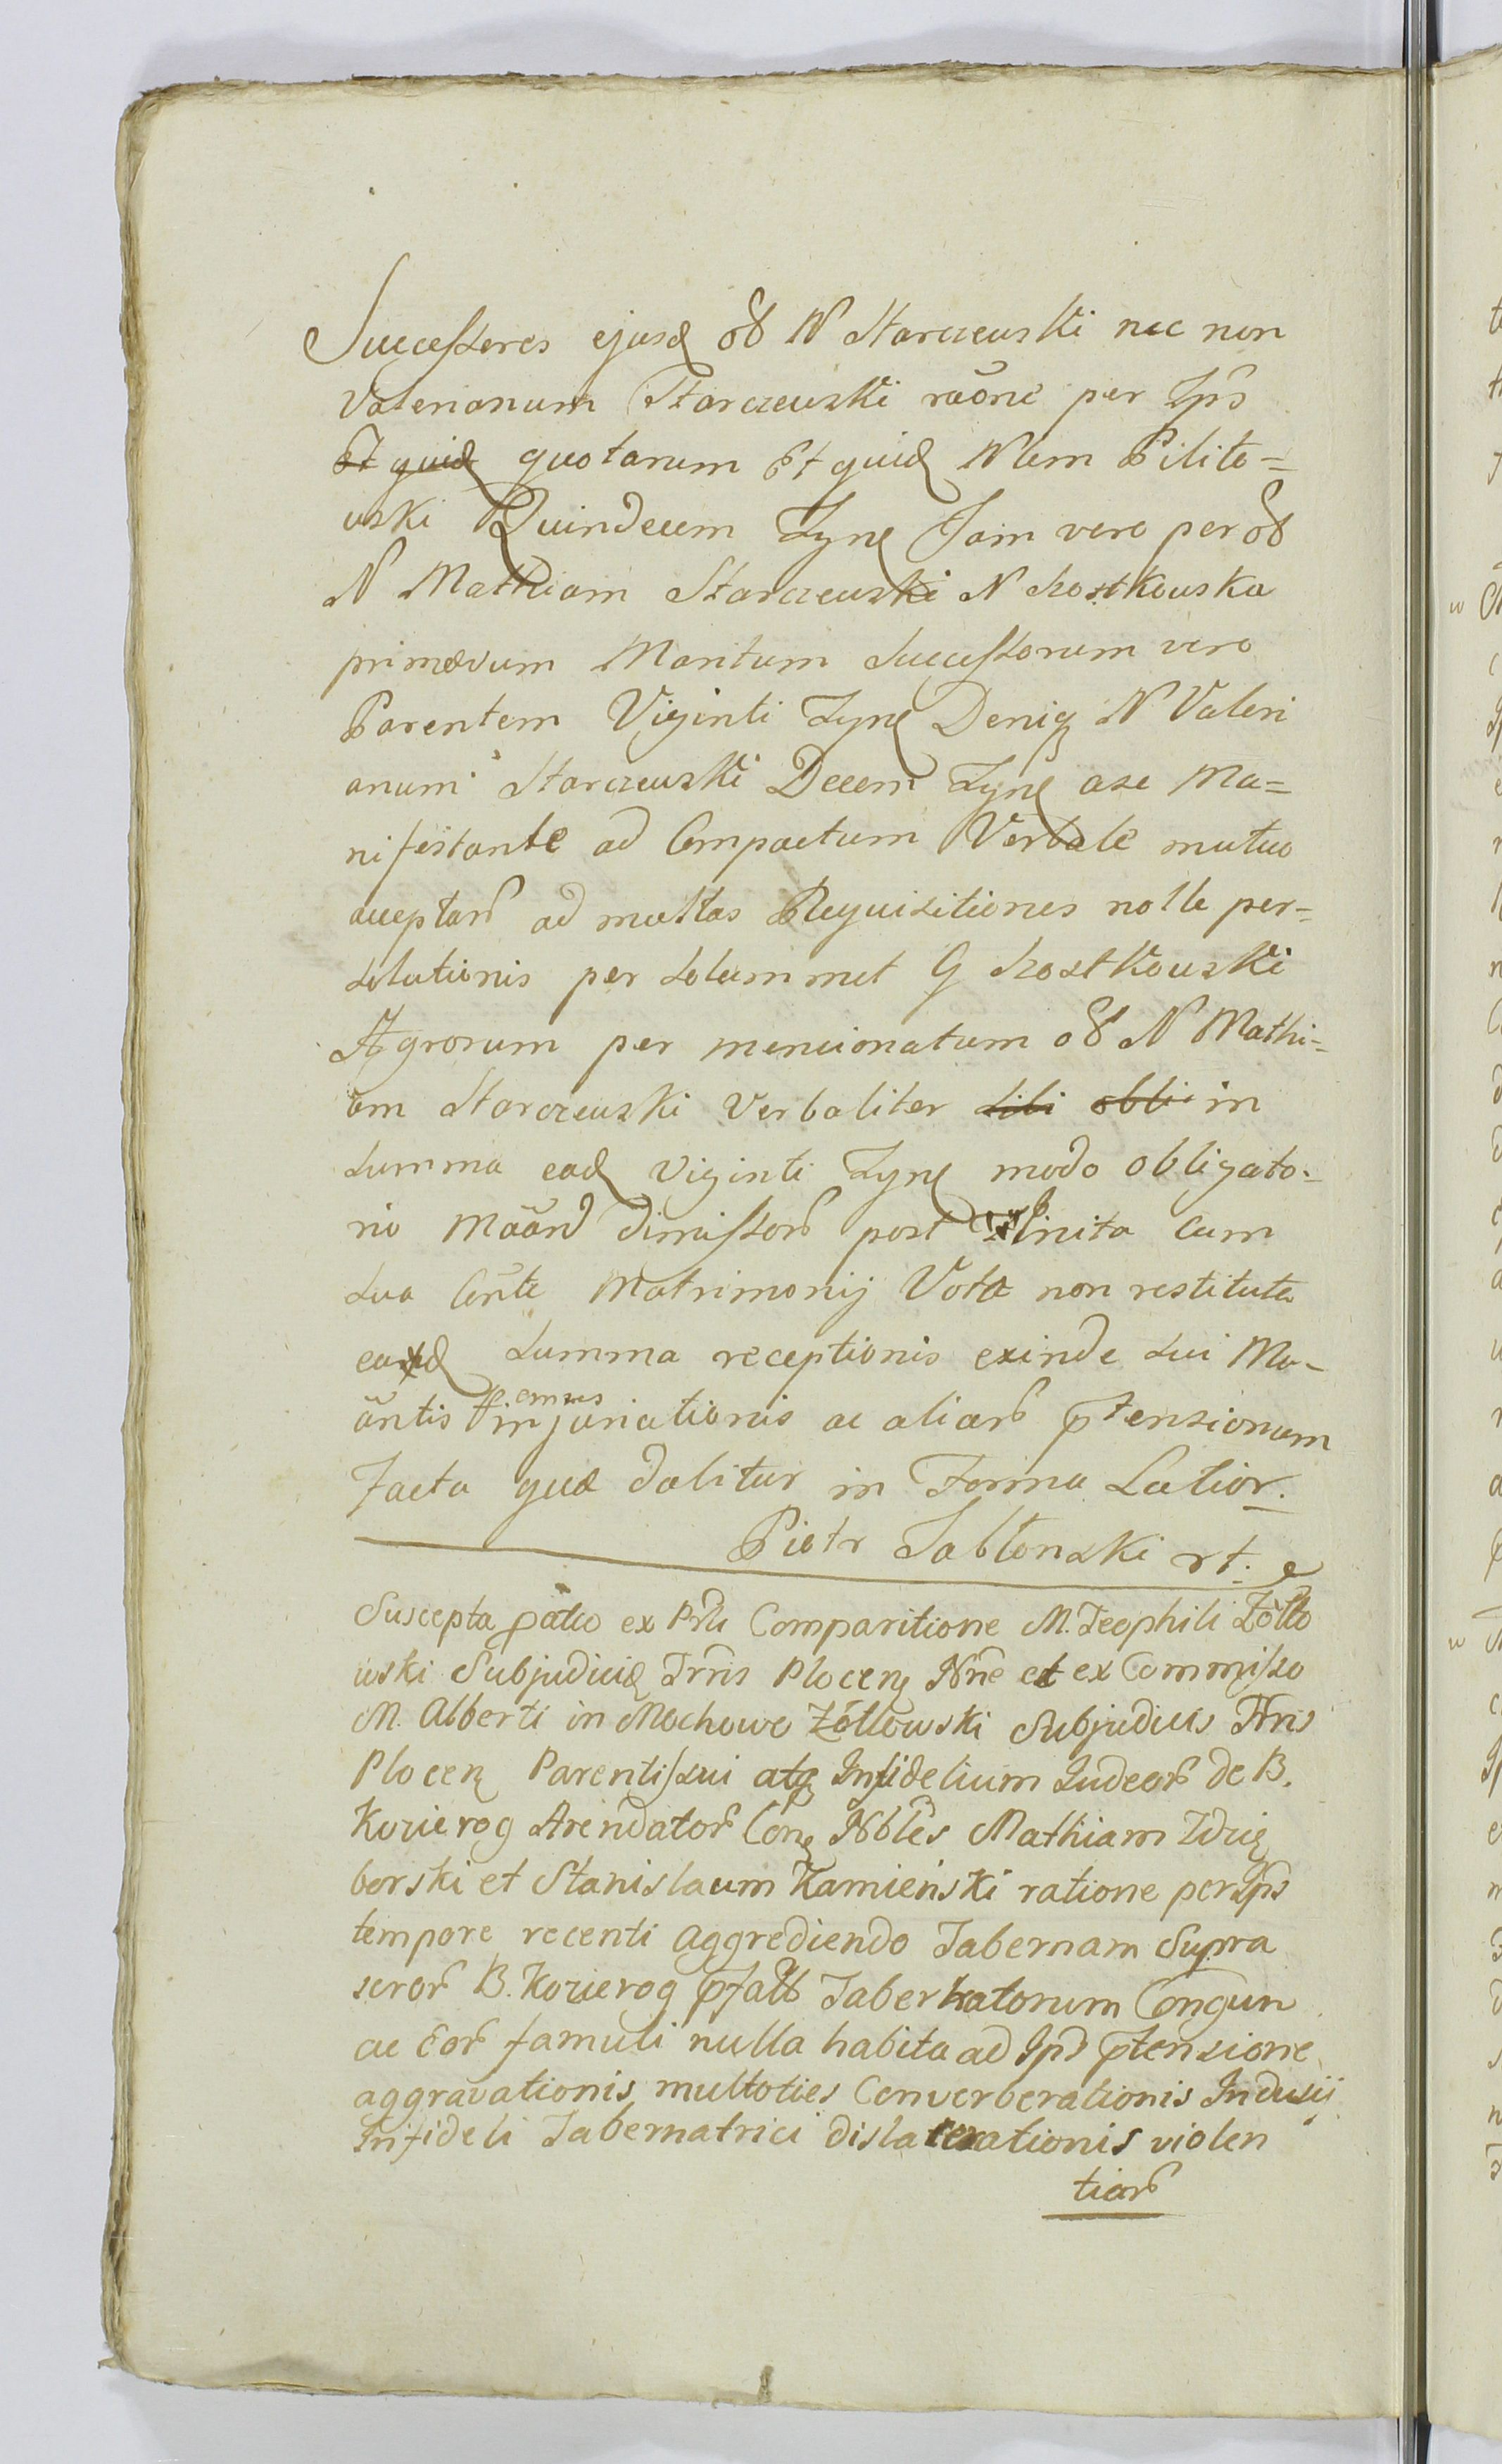 Successores ejusd ob N Starczewski nec non
Valerianum Starczewski raōne per Ips
Et quid quotarum Et quid Nlem Pilito=
wski Quindecem Tyne Jam vero per ob
N Mathiam Starczewski N Kostkowska
primævum Maritum Successorum vero
Parentem Viginti Tyne Deniq N Valeri
anum Starczewski Decem Tyne ase Ma=
nifestante ad Compactum Verbale mutuo
acceptar ad multas Requisitiones nolle per=
solutionis per solummet G Kostkowski
Agrorum per mencionatum ob N Mathi=
am Starczewski Verbaliter sibi obli in
summa ead viginti Tyne modo obligato=
rio Māand dimissor post inita cum
sua Cōnte Matrimonij Vota non restituta
ead summa receptionis exinde sui Ma=
āntis omnis injuriationis ac aliar ptensionum
facta quæ dabitur in Forma Latior.
Piotr Jabłonski rt.
Suscepta ꝑatio ex Prli Comparitione M. Teophili Żołto
wski Subjudicid Trris Plocen Nne et ex Commisso
M. Alberti in Mochowo Żółtowski Subjudicis Trris
Plocen Parentis sui atq Infidelium Judeor de B.
Kozierog Arendator Con Nbles Mathiam Zdzię
borski et Stanislaum Kamieński ratione per Ips
tempore recenti aggrediendo Tabernam Supra
scror B. Kozierog pfatt Tabernatorum Congun
ac Eor famuli nulla habita ad Ips ptensione
aggravationis multoties Converberationis Indusij
Infideli Tabernatrici dislacerationis violen
tiar